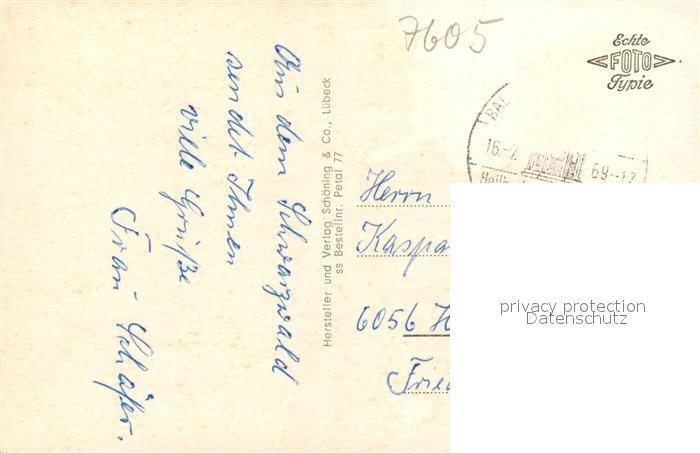 7605
Echte
FOTO
Typie
BAL
16.-
69-12
Heilb
Aus dem Schwarzwald
sendet Ihnen
viele Grüße
Frau Schäfer.
Hersteller und Verlag Schöning & Co., Lübeck
ss Bestellnr. Petal 77
Herrn
Kaspa
6056 H
Fried
privacy protection
Datenschutz